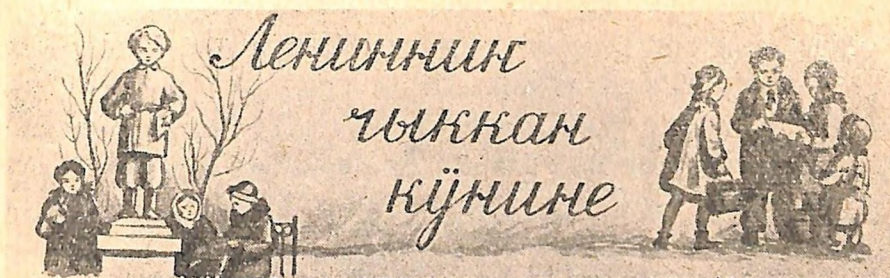 Ленинниҥ
чыккан
кӱнине